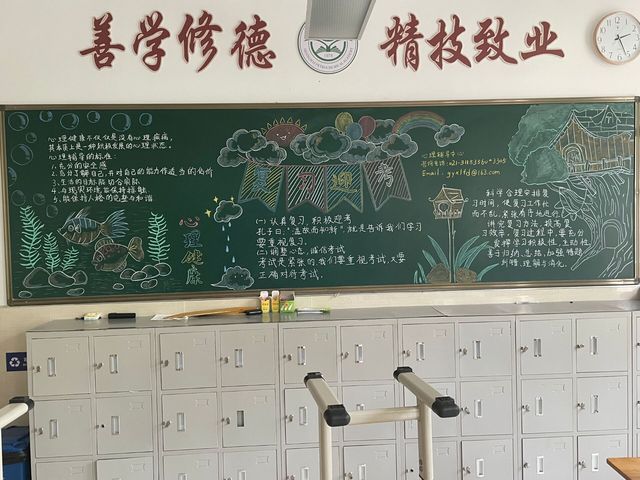 善学修德
精技致业
心理健康不仅仅是没有心理疾病，
其本质上是一种积极发展的心理状态。
心理辅导的标准：
1.充分的安全感
2.充分了解自己,并对自己的能力作适当的估价
3.生活的目标能切合实际
4.与现实环境能保持接触
5.能保持人格的完整与和谐
心理健康
复习迎考
(一)认真复习 积极迎考
孔子曰："温故而知新"就是告诉我们学习
要重视复习。
(二)调整心态，诚信考试
考试是紧张的，我们要重视考试，又要
正确对待考试。
心理辅导中心
Email：gyxlfd@163.com
科学合理安排复
习时间，使复习工作忙
而不乱，紧张有序地进行。
讲究复习方法，提高复
习效率，复习过程中，要充分
发挥学习积极性，主动性
善于归纳、总结，加强
理解与消化。